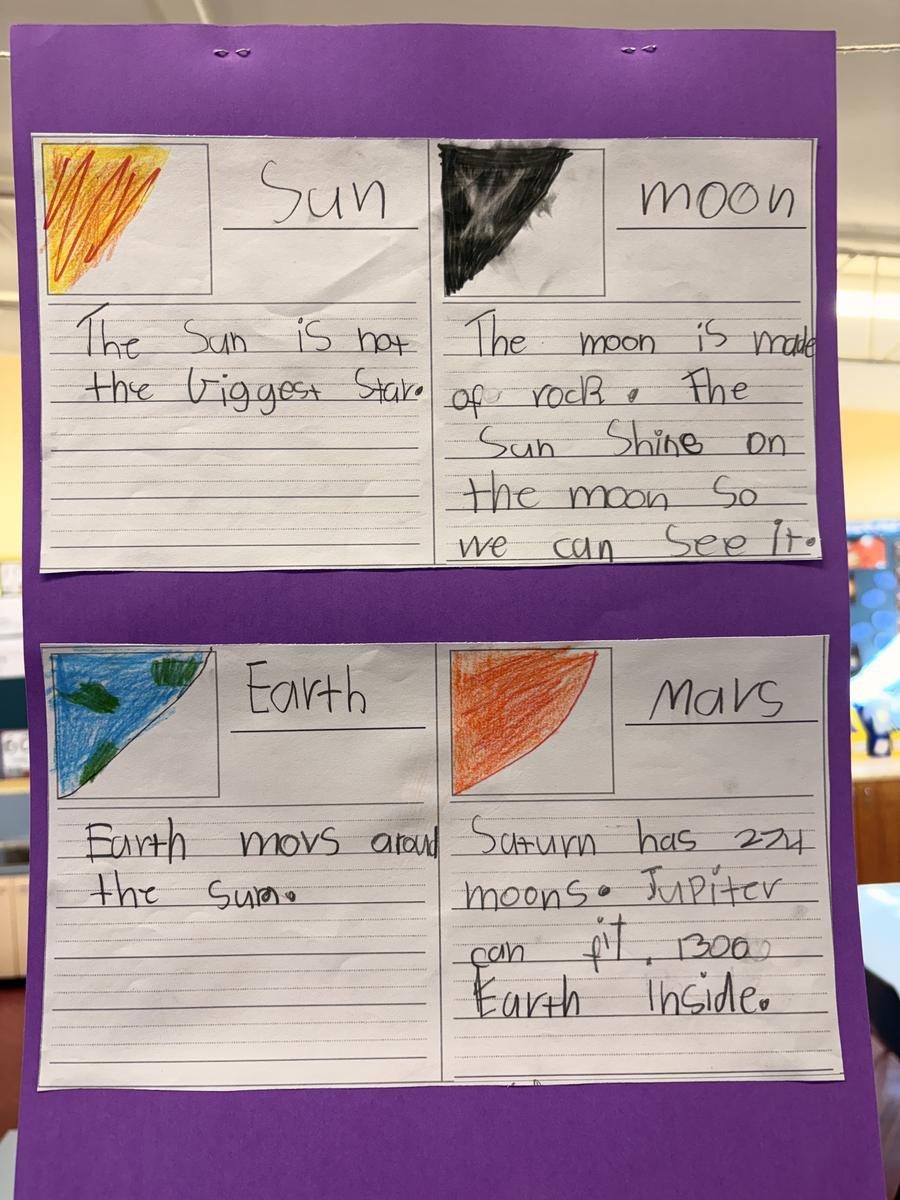 Sun
The Sun is not
the biggest Star.
moon
The moon is made
of rock. The
Sun Shine on
the moon so
we can see it.
Earth
Earth movs aroud
the sun.
Mars
Saturn has 274
moons. Jupiter
can fit. 1300
Earth Inside.